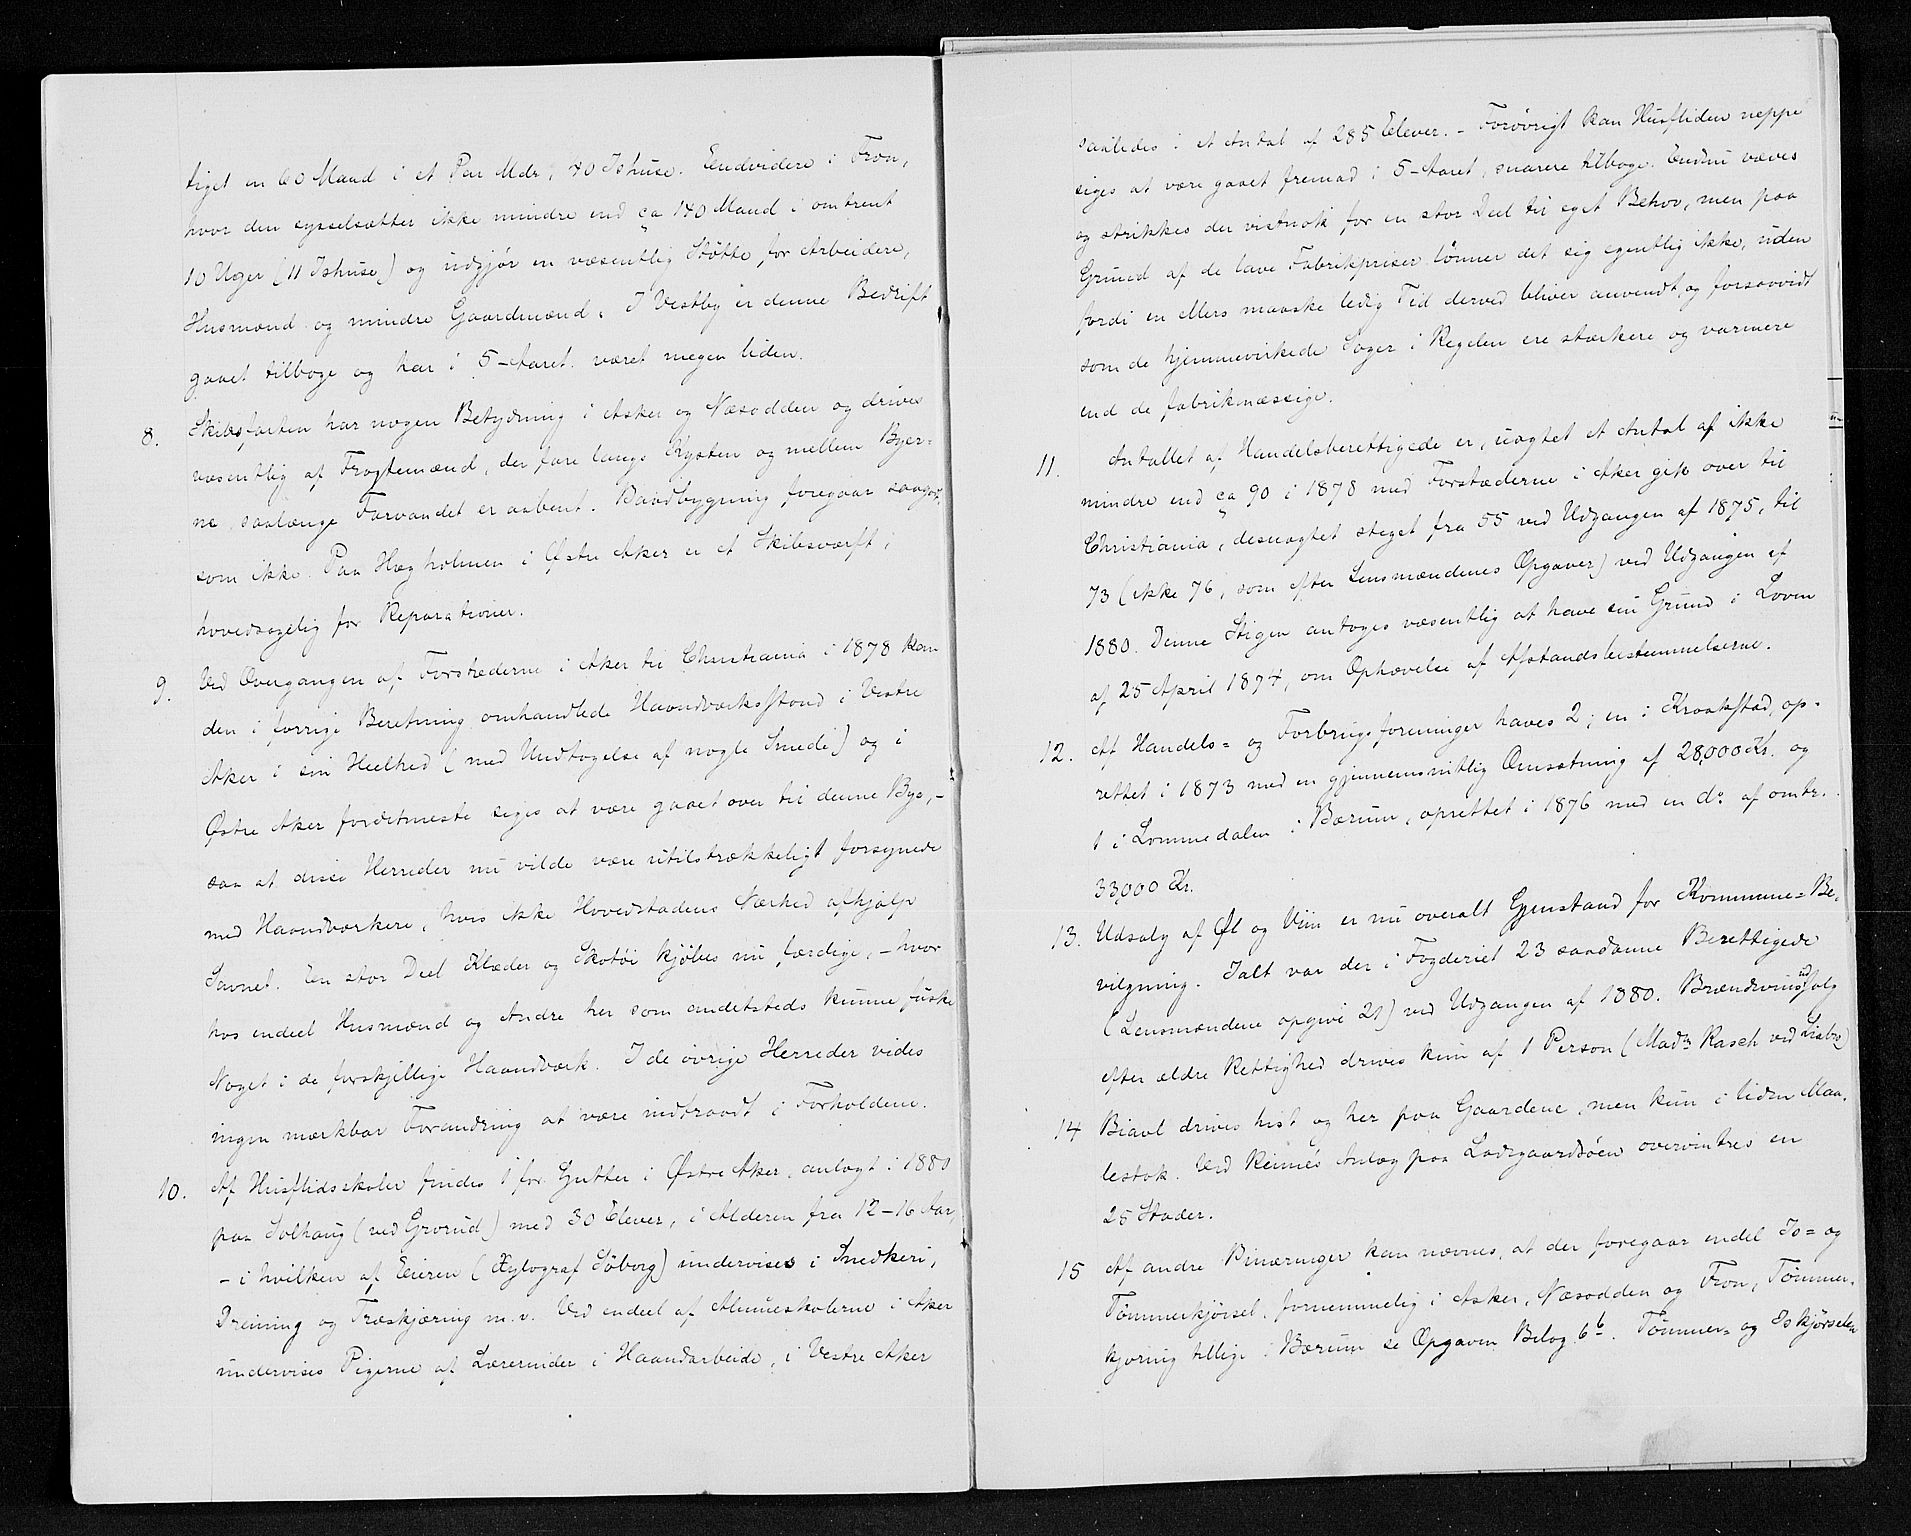 tiget en 60 Mand i et Par Mdr, 40 Ishuse. Eendvidere i Fron,
hvor den sysselsætter ikke mindre end ca 140 Mand i omtrent
10 Uger (11 Ishuse) og udgjør en væsentlig Støtte for Arbeidere,
Husmænd og mindre Gaardmænd. I Vestby er denne Bedrift
gaaet tilbage og har i 5-Aaret været megen liden.
8. Skibsfarten har nogen Betydning i Asker og Næsodden og drives
væsentlig af Fragtemænd, der fare langs Kysten og mellem Byer-
ne, saalænge Farvandet er aabent. Baadbygning foregaar saagodt
som ikke. Paa Hægholmen i Østre Aker er et Skibsværft,
hovedsagelig for Reparationer.
9. Ved Overgangen af Forstæderne i Aker til Christiania i 1878 kan
den i forrige Beretning omhandlede Haandværksstand i Vestre
Aker i sin Heelhed (med Undtagelse af nogle Smede) og i
Østre Aker fordetmeste siges at være gaaet over til denne By, –
saa at disse Herreder nu vilde være utilstrækkeligt forsynede
med Haandværkere, hvis ikke Hovedstadens Nærhed afhjalp
Savnet. En stor Deel Klæder og Skotøi kjøbes nu færdige, – hvor
hos endeel Husmænd og Andre her som andetsteds kunne fuske
Noget i de forskjellige Haandværk. I de øvrige Herreder vides
ingen mærkbar Forandring at være indtraadt i Forholdene.
10. Af Husflidsskoler findes 1 for Gutter i Østre Aker, anlagt i 1880
paa Solhaug (ved Grorud) med 30 Elever, i Alderen fra 12–16 Aar,
– i hvilken af Eieren (Xylograf Söborg) undervises i Snedkeri,
Dreining og Træskjæring m.v. Ved endeel af Almueskolerne i Aker
undervises Pigerne af Lærerinder i Haandarbeide, i Vestre Aker
saaledes i et Antal af 285 Elever. – Forøvrigt kan Husfliden neppe
siges at være gaaet fremad i 5-Aaret, snarere tilbage. Endnu væves
og strikkes der vistnok for en stor Deel til eget Behov, men paa
Grund af de lave Fabrikpriser lønner det sig egentlig ikke, uden
fordi en ellers maaske ledig Tid derved bliver anvendt, og forsaavidt
som de hjemmevirkede Sager i Regelen ere stærkere og varmere
end de fabrikmæssige.
11. Antallet af Handelsberettigede er, uagtet et Antal af ikke
mindre end ca 90 i 1878 med Forstæderne i Aker gik over til
Christiania, desuagtet steget fra 55 ved Udgangen af 1875, til
73 (ikke 76, som efter Lensmændenes Opgaver) ved Udgangen af
1880. Denne Stigen antages væsentlig at have sin Grund i Loven
af 25 April 1874, om Ophævelse af Afstandsbestemmelserne.
12. Af Handels= og Forbrugsforeninger haves 2; en i Kraakstad, op-
rettet i 1873 med en gjennemsnitlig Omsætning af 28,000 Kr. og
1 i Lommedalen i Bærum, oprettet i 1876 med en do af omtr.
33,000 Kr.
13. Udsalg af Øl og Viin er nu overalt Gjenstand for Kommune=Be-
vilgning. Ialt var der i Fogderiet 23 saadanne Berettigede
(Lensmændene opgive 21) ved Udgangen af 1880. Brændeviinsudsalg
efter ældre Rettighed drives kun af 1 Person (Madm Rasch ved Sinbro)
14 Biavl drives hist og her paa Gaardene, men kun i liden Maa-
lestok. Ved Anlæg paa Ladegaardsöen overvintres en
25 Stader.
15 Af andre Binæringer kan nævnes, at der foregaar endel Is= og
Tømmerkjørsel, fornemmelig i Asker, Næsodden og Fron, Tømmer-
kjøring tillige i Bærum se Opgaven Bilag 6b. Tømmer= og Iskjørselen